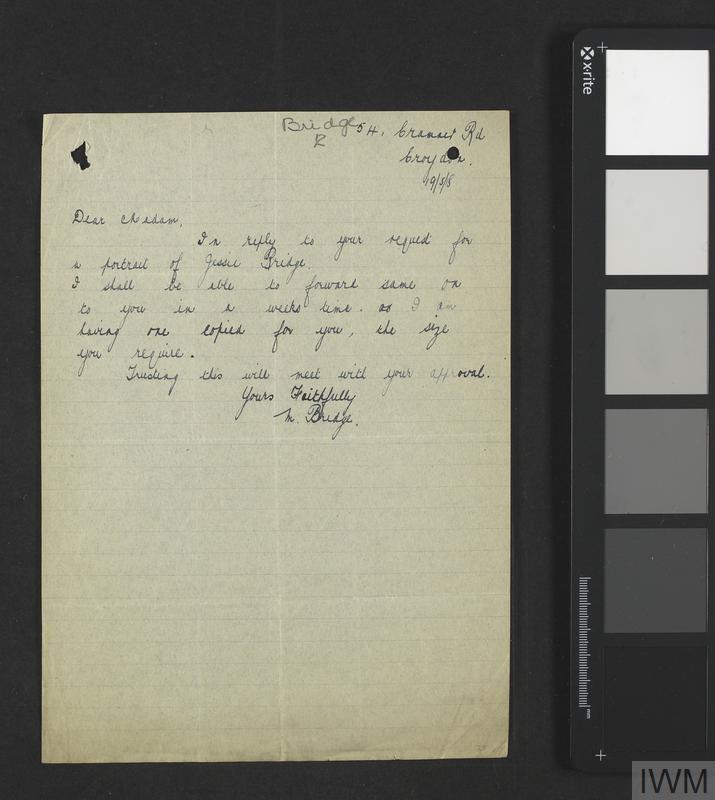 Bridge
R
54, Cranmer Rd
Croydon.
19/5/8
Dear Madam,
In reply to your request for
a portrait of Jessie Bridge.
I shall be able to forward same on
to you in a weeks time. as I am
having one copied for you, the size
you require.
Trusting this will meet with your approval.
Yours Faithfully
M. Bridge.
x-rite
mm
IWM